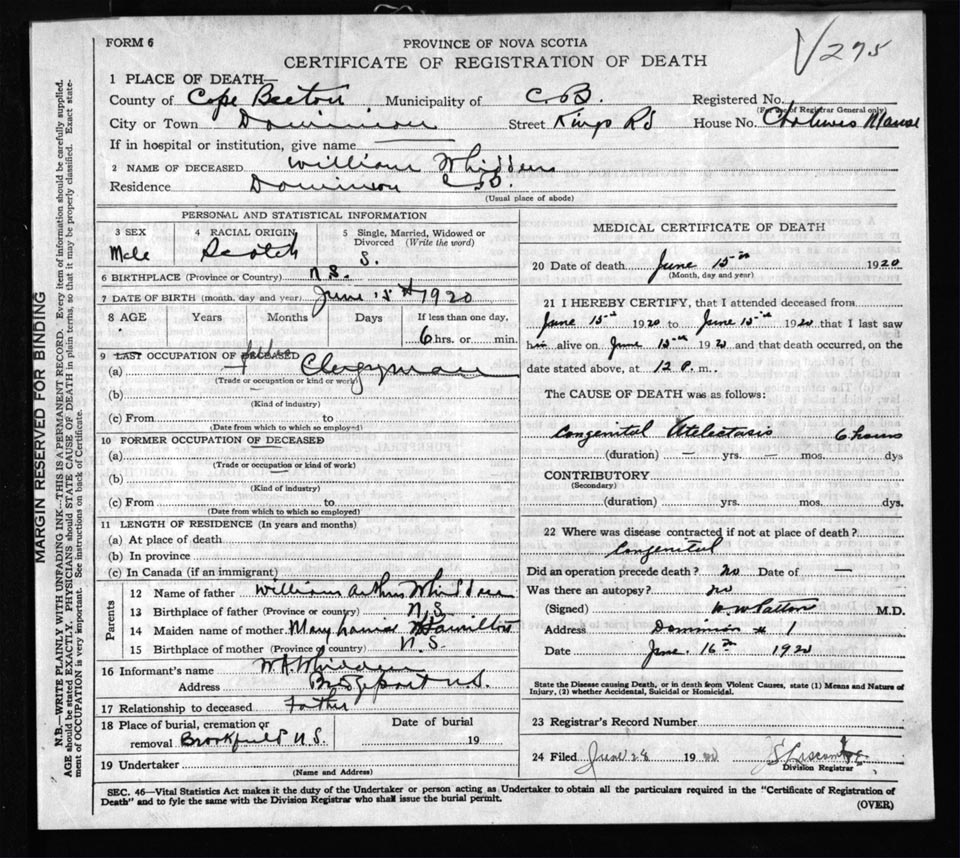 FORM 6
PROVINCE OF NOVA SCOTIA
CERTIFICATE OF REGISTRATION OF DEATH
√275
1 PLACE OF DEATH—
County of Cape Breton Municipality of C.B. Registered No.
(For use of Registrar General only)
City or Town Dominion Street Kings Rd House No. Manse
If in hospital or institution, give name
2 NAME OF DECEASED William Whidden
Residence Dominion C.B.
(Usual place of abode)
PERSONAL AND STATISTICAL INFORMATION
3 SEX 4 RACIAL ORIGIN 5 Single, Married, Widowed or Divorced (Write the word)
Male Scotch S.
6 BIRTHPLACE (Province or Country) N.S.
7 DATE OF BIRTH (month, day and year) June 15th 1920
8 AGE Years Months Days If less than one day,
6 hrs. or min.
9 LAST OCCUPATION OF DECEASED father
(a) Clergyman
(Trade or occupation or kind or work)
(b)
(Kind of industry)
(c) From to
(Date from which to which so employed)
10 FORMER OCCUPATION OF DECEASED
(a)
(Trade or occupation or kind of work)
(b)
(Kind of industry)
(c) From to
(Date from which to which so employed)
11 LENGTH OF RESIDENCE (In years and months)
(a) At place of death
(b) In province
(c) In Canada (if an immigrant)
Parents
12 Name of father William Arthur Whidden
13 Birthplace of father (Province or country) N.S.
14 Maiden name of mother Mary Hamilton
15 Birthplace of mother (Province or country) N.S.
16 Informant's name W.A. Whidden
Address Bridgeport N.S.
17 Relationship to deceased Father
18 Place of burial, cremation or Date of burial
removal Brookfield N.S. 19
19 Undertaker
(Name and Address)
MEDICAL CERTIFICATE OF DEATH
20 Date of death June 15th 1920
(Month, day and year)
21 I HEREBY CERTIFY, that I attended deceased from
June 15th 1920 to June 15th 1920 that I last saw
him alive on June 15th 1920 and that death occurred, on the
date stated above, at 12 P. m.
The CAUSE OF DEATH was as follows:
Congenital Atelectasis 6 hours
(duration) — yrs. — mos. dys
CONTRIBUTORY
(Secondary)
(duration) yrs. mos. dys.
22 Where was disease contracted if not at place of death?
Congenital
Did an operation precede death? No Date of —
Was there an autopsy? no
(Signed) W W Patton M.D.
Address Dominion # 1
Date June. 16th 1920
State the Disease causing Death, or in death from Violent Causes, state (1) Means and Nature of
Injury, (2) whether Accidental, Suicidal or Homicidal.
23 Registrar's Record Number
24 Filed June 28 1920
Division Registrar
SEC. 46—Vital Statistics Act makes it the duty of the Undertaker or person acting as Undertaker to obtain all the particulars required in the "Certificate of Registration of
Death" and to fyle the same with the Division Registrar who shall issue the burial permit.
(OVER)
MARGIN RESERVED FOR BINDING
N.B.—WRITE PLAINLY WITH UNFADING INK—THIS IS A PERMANENT RECORD. Every item of information should be carefully supplied.
AGE should be stated EXACTLY. PHYSICIANS should STATE CAUSE OF DEATH in plain terms, so that it may be properly classified. Exact state-
ment of OCCUPATION is very important. See instructions on back of Certificate.